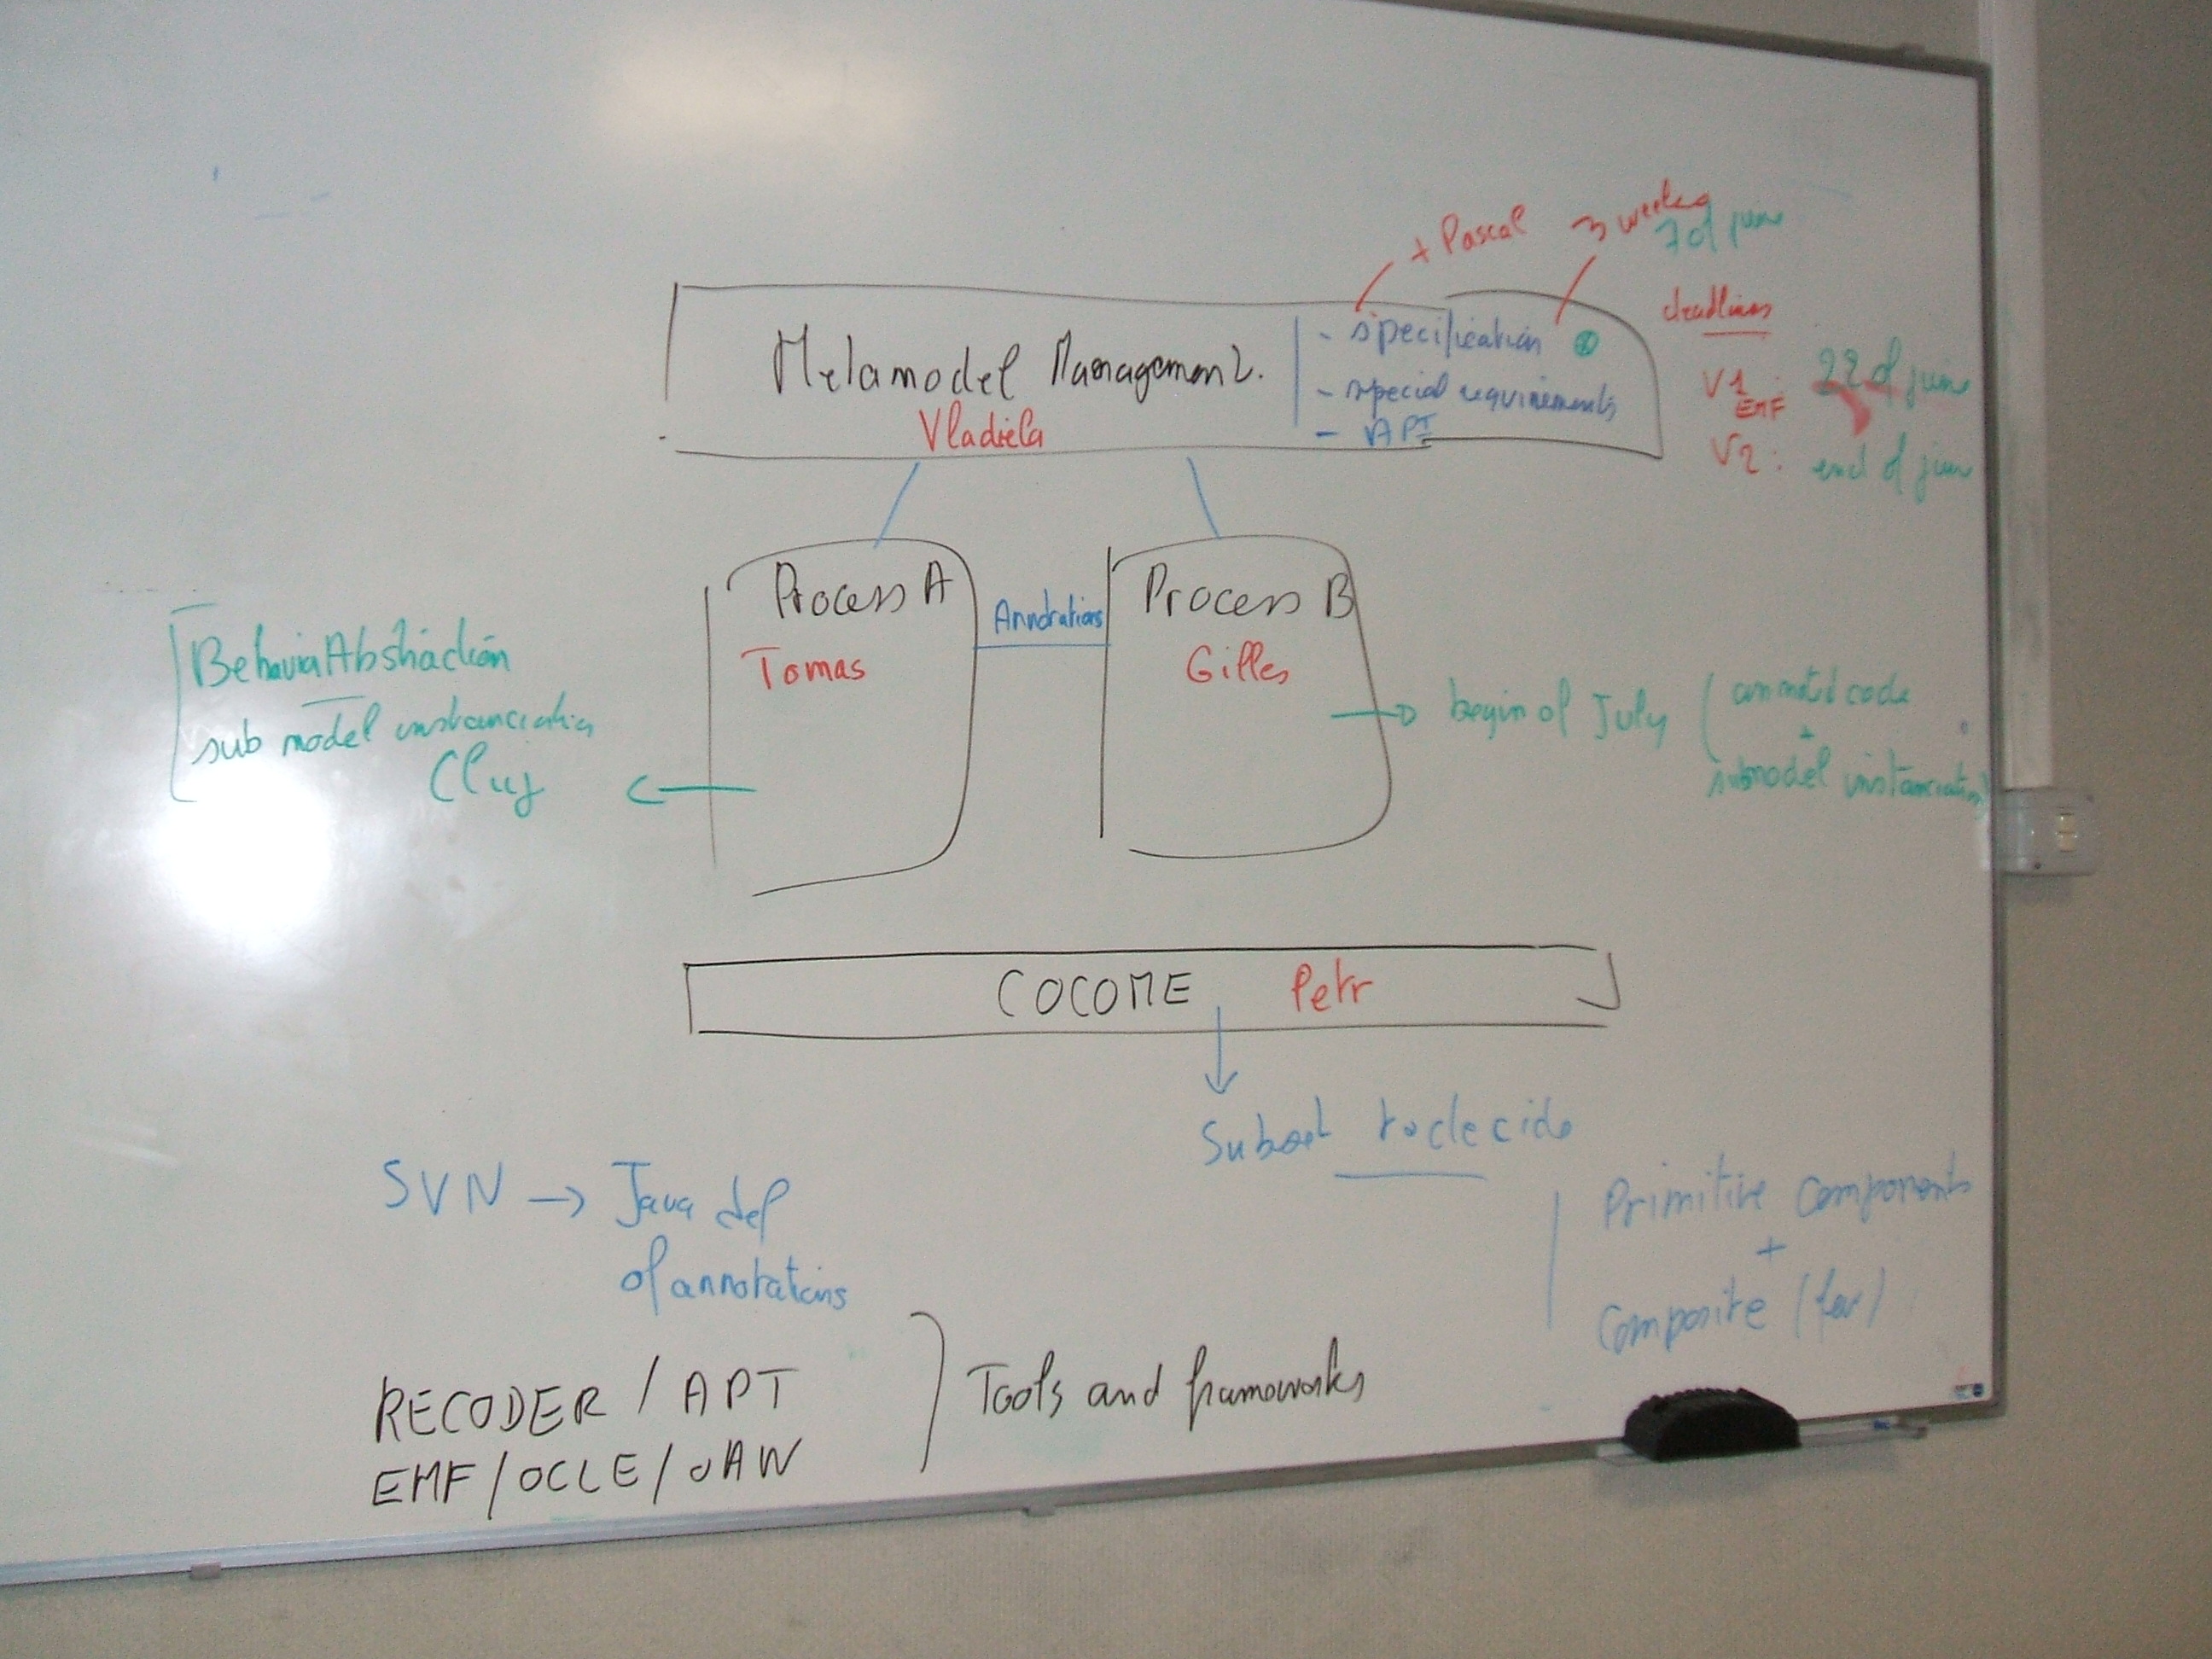 + Pascal
3 weeks
7 of june
Metamodel Management.
Vladiela
- specification
- special requirements
- APT
deadlines
V1 EMF : 22 of june
V2 : end of june
Process A
Tomas
Annotations
Process B
Gilles
BehaviorAbstraction
sub model instanciation
Cluj
begin of July
annoted code
+
submodel instanciation
COCOME Petr
Subset to decide
SVN → Java def
of annotations
Primitive Components
+
Composite (few)
RECODER / APT
EMF / OCLE / oAW
Tools and frameworks